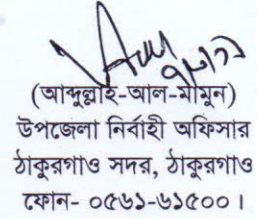 (আব্দুল্লাহ-আল-মামুন)
উপজেলা নির্বাহী অফিসার
ঠাকুরগাও সদর, ঠাকুরগাও
ফোন- ০৫৬১-৬১৫০০।